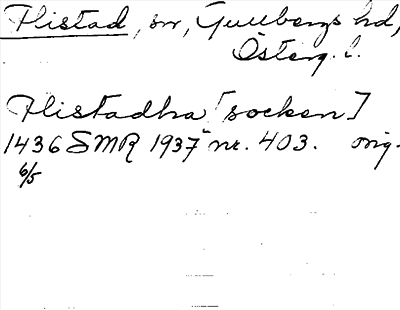 Flistad, sn, Gullbergs hd,
Österg. l.
Flistadha [socken]
1436 SMR 1937 nr. 403. orig.
6/5